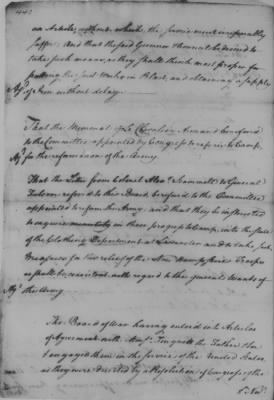 442
an Article, without which the service must irreparably
suffer: And that the said Governor & Council be desired to
take such means, as they shall think most proper for
putting the said Works in Blast, and obtaining a supply
Ag.d of Iron without delay.
That the Memorial of Le Chevalier be referred
to the Committee appointed by Congress to repair to Camp,
Ag.d for the reformation of the Army.
That the Letter from Colonel Alex.r Scammell to General
Sullivan referred to this Board, be referred to the Committee
appointed to reform the Army; and that they be instructed
to enquire in their progress to Camp, into the state
of the Cloathing Department at Lancaster and to take such
Measures for the relief of the New Hampshire Troops
as shall be consistent with regard to the general wants of
Ag.d the Army.
The Board of War having entered into Articles
of Agreement with Mess.rs the Father & Son
& engaged them in the Service of the United States
as they were directed by a Resolution of Congress of the